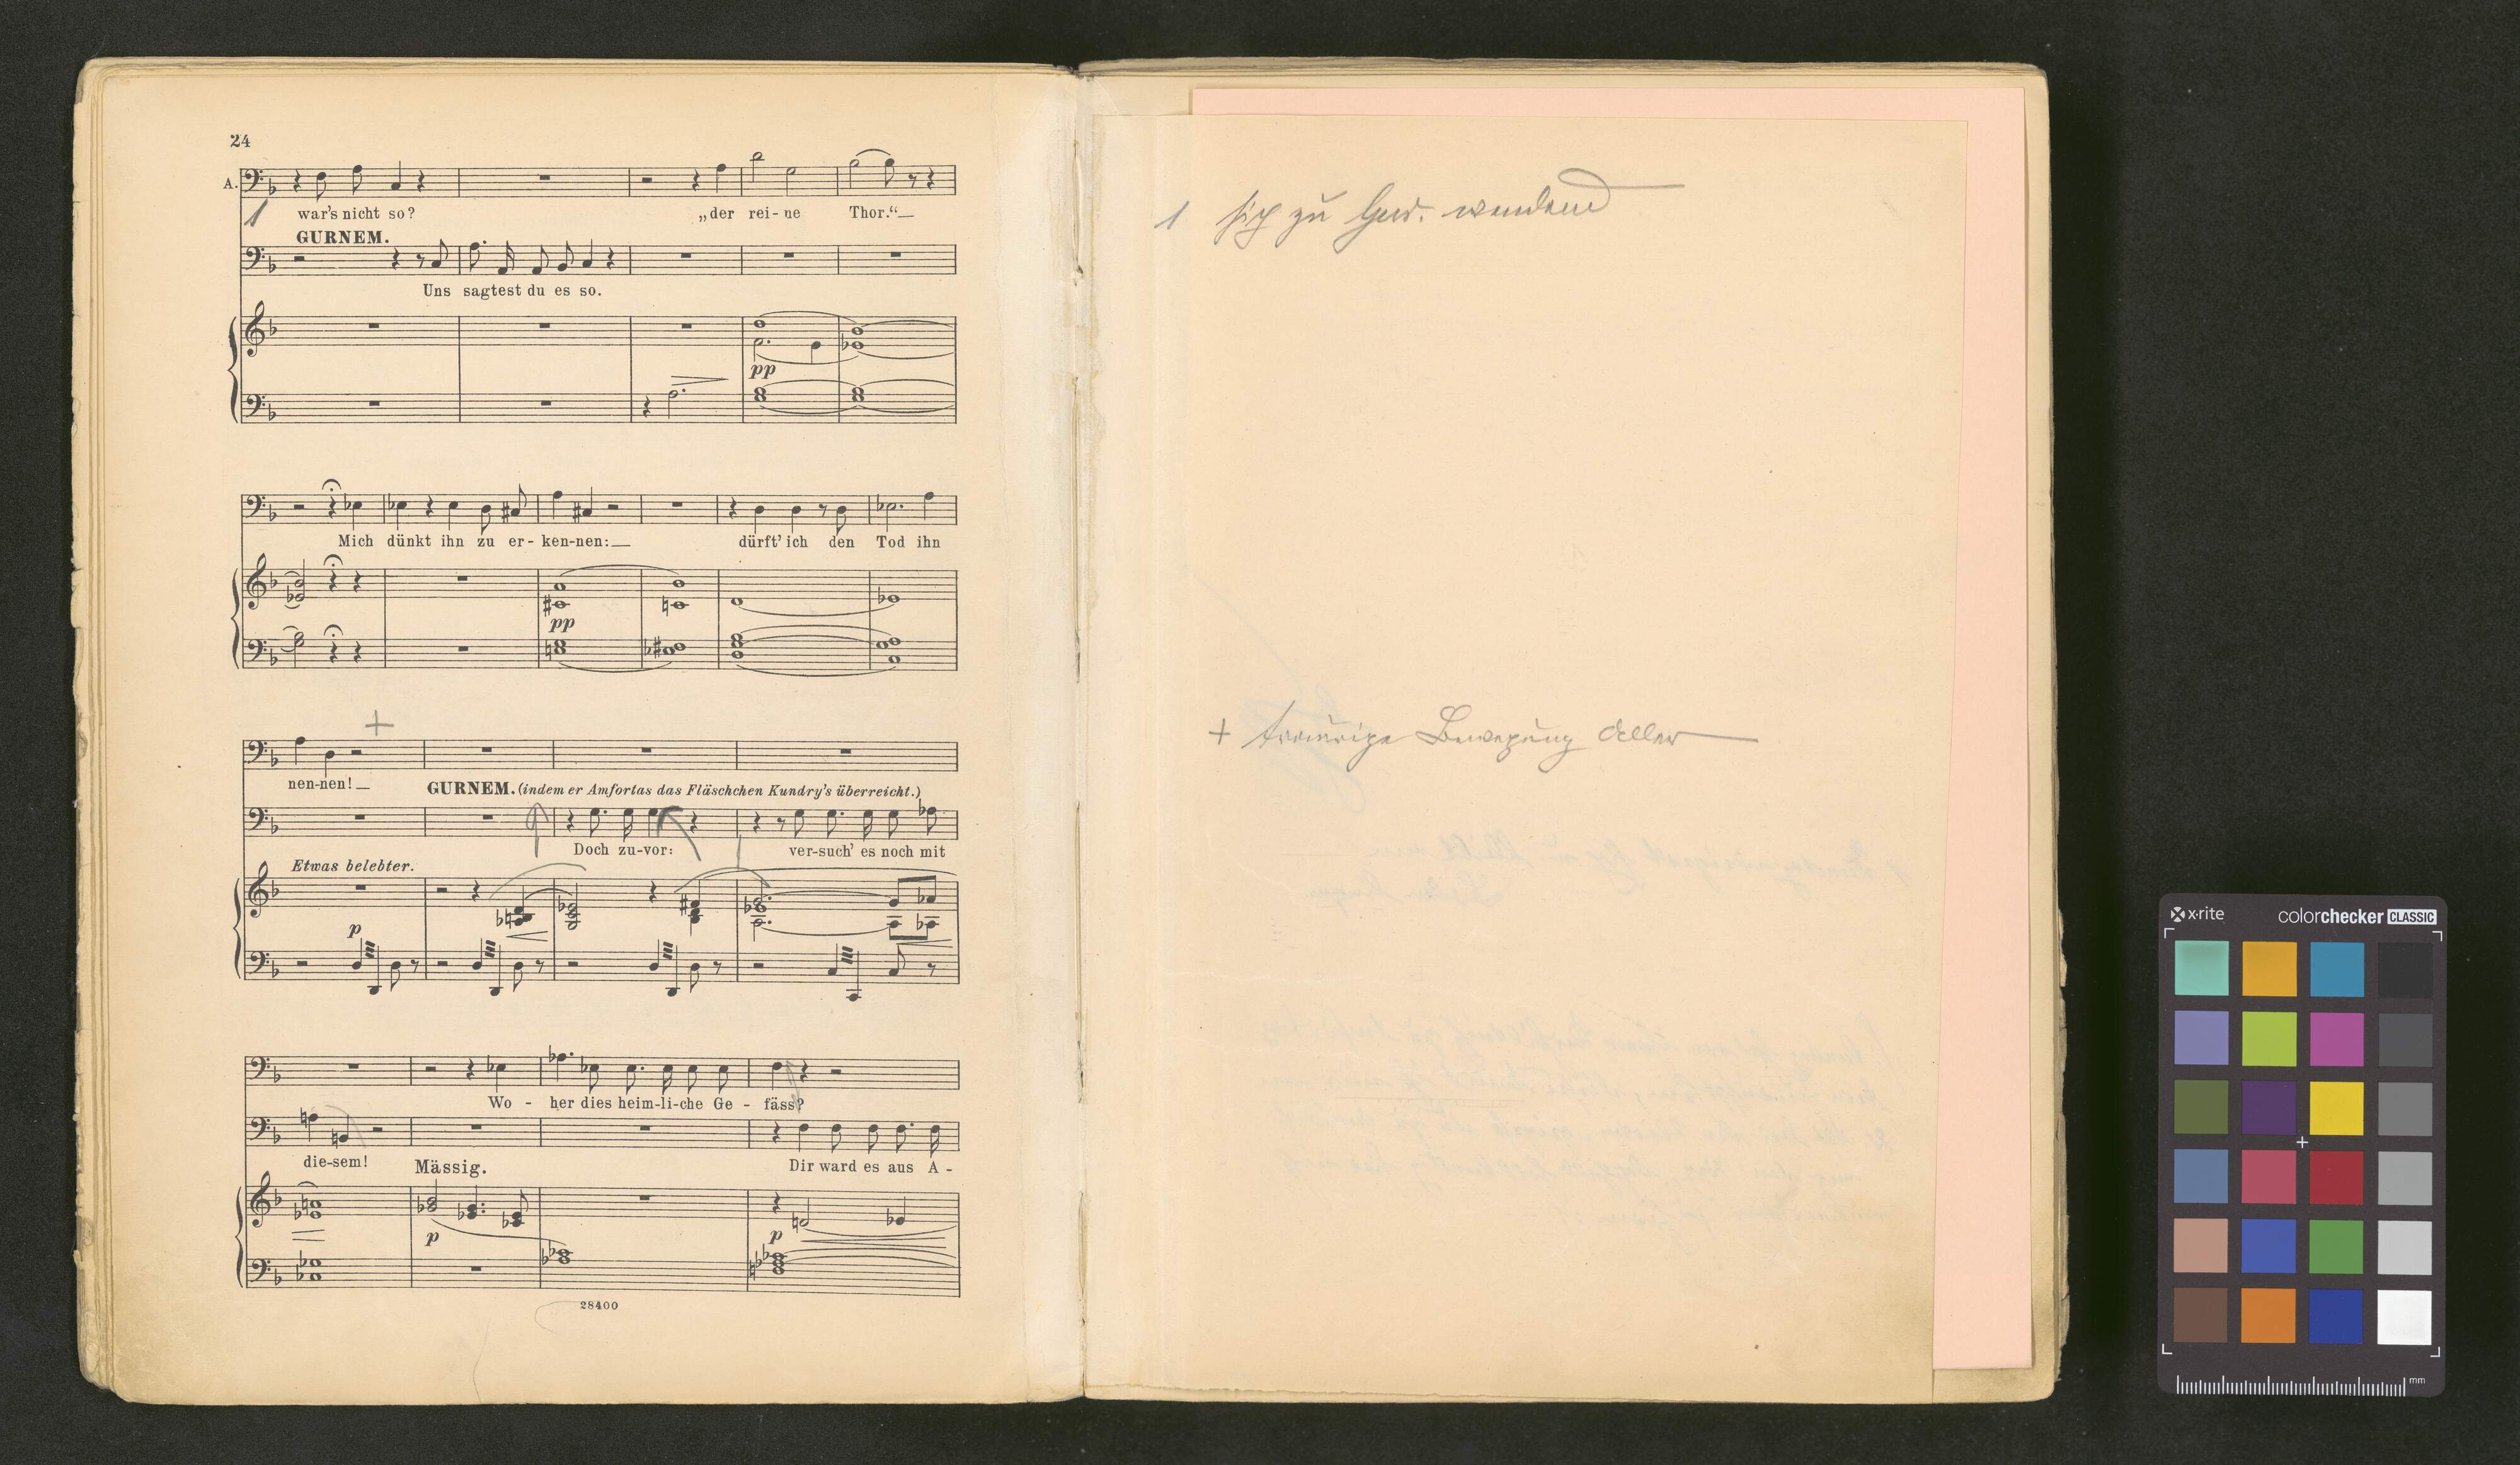 24
A.
war's nicht so? „der rei-ne Thor."—
1
GURNEM.
Uns sagtest du es so.
pp
Mich dünkt ihn zu er-ken-nen:— dürft' ich den Tod ihn
pp
+
nen-nen!—
GURNEM. (indem er Amfortas das Fläschchen Kundry's überreicht.)
Doch zu-vor: ver-such' es noch mit
Etwas belebter.
p
Wo - her dies heim-li-che Ge - fäss?
die-sem! Mässig. Dir ward es aus A -
p p
28400
1 sich zu Gur. wendend
+ traurige Bewegung Aller
x·rite colorchecker CLASSIC
mm